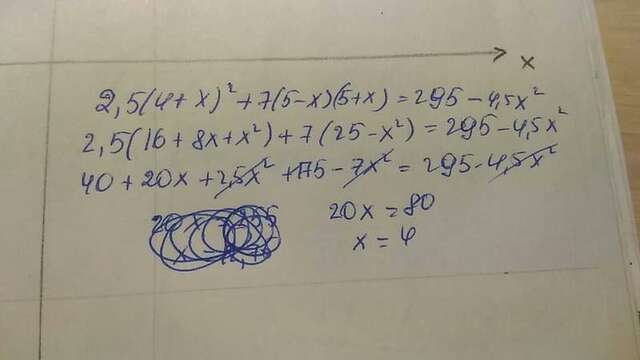 x
2,5(4+x)² + 7(5-x)(5+x) = 295 - 4,5x²
2,5(16 + 8x + x²) + 7(25 - x²) = 295 - 4,5x²
40 + 20x + 2,5x² + 175 - 7x² = 295 - 4,5x²
20x = 80
x = 4